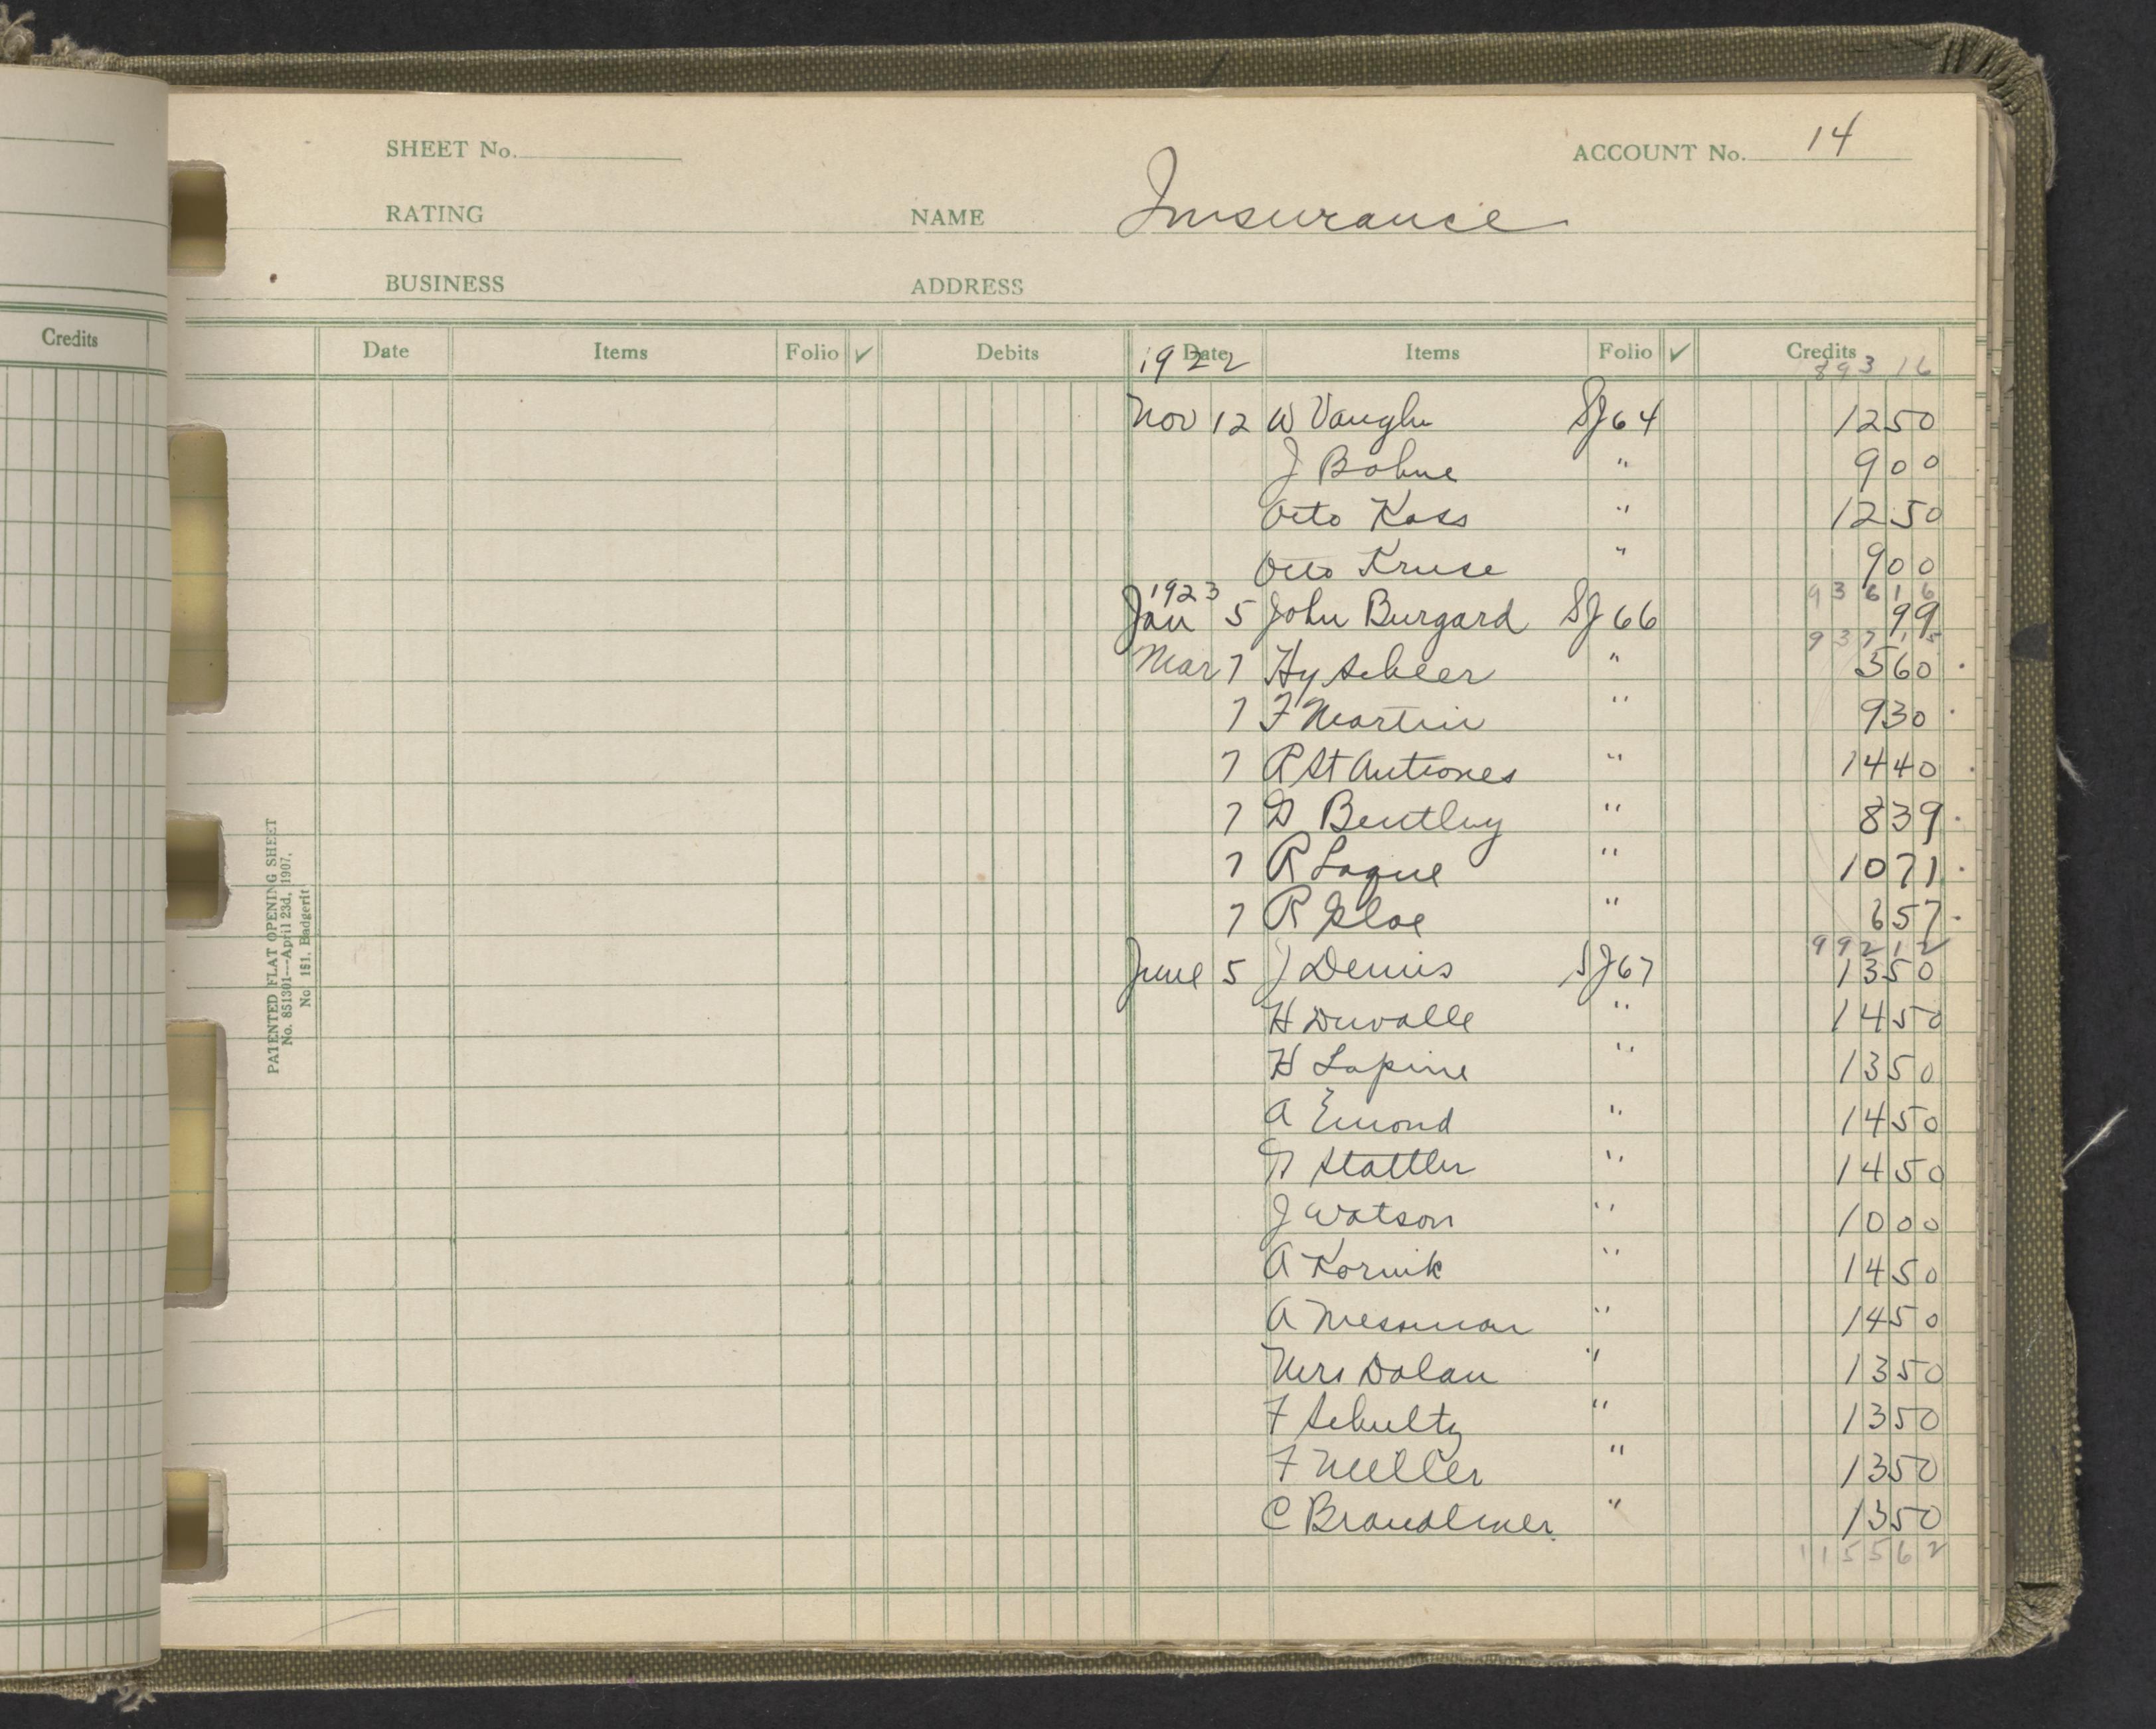 Credits
SHEET No.
ACCOUNT No. 14
RATING
NAME Insurance
BUSINESS
ADDRESS
Date Items Folio ✓ Debits Date Items Folio ✓ Credits
1922 893 16
Nov 12 W Vaughn SJ 64 12 50
J Bohne " 9 00
Otto Kass " 12 50
Otto Kruse " 9 00
1923 936 16
Jan 5 John Burgard SJ 66 99
937 15
Mar 7 Hy Scheer " 5 60
7 F Martin " 9 30
7 R St Antiones " 14 40
7 D Bentley " 8 39
7 R Laque " 10 71
7 R Gloe " 6 57
992 12
June 5 J Dennis SJ 67 13 50
H Duvalle " 14 50
H Lapine " 13 50
A Emond " 14 50
Stattler " 14 50
J Watson " 10 00
A Kornik " 14 50
A Messman " 14 50
Mrs Dolan " 13 50
F Schultz " 13 50
F Miller " 13 50
C " 13 50
1155 62
PATENTED FLAT OPENING SHEET
No. 851301—April 23d, 1907.
No. 151. Badgerit